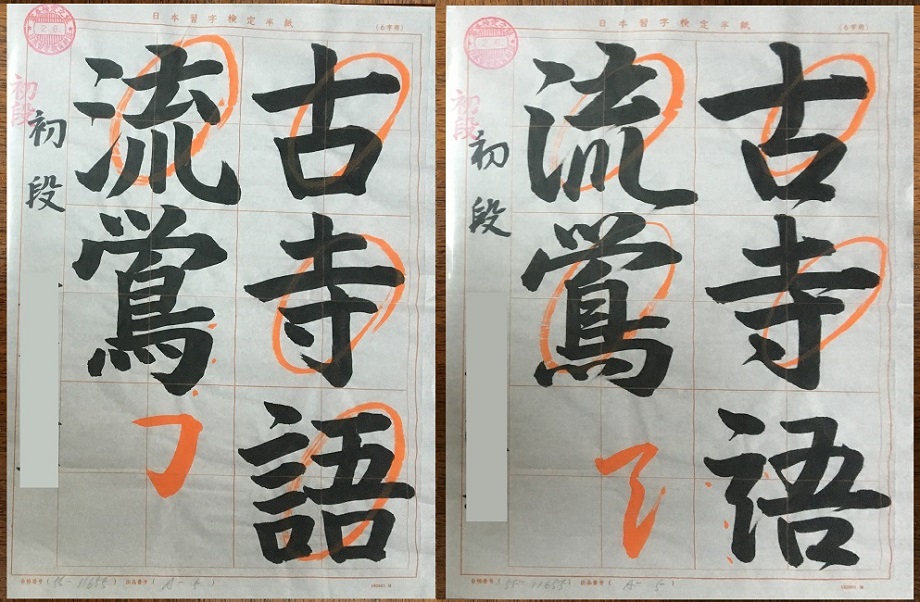 日本習字検定半紙
(6字用)
古寺語
流鴬
初段
初段
日本習字検定半紙
(6字用)
古寺語
流鴬
初段
初段